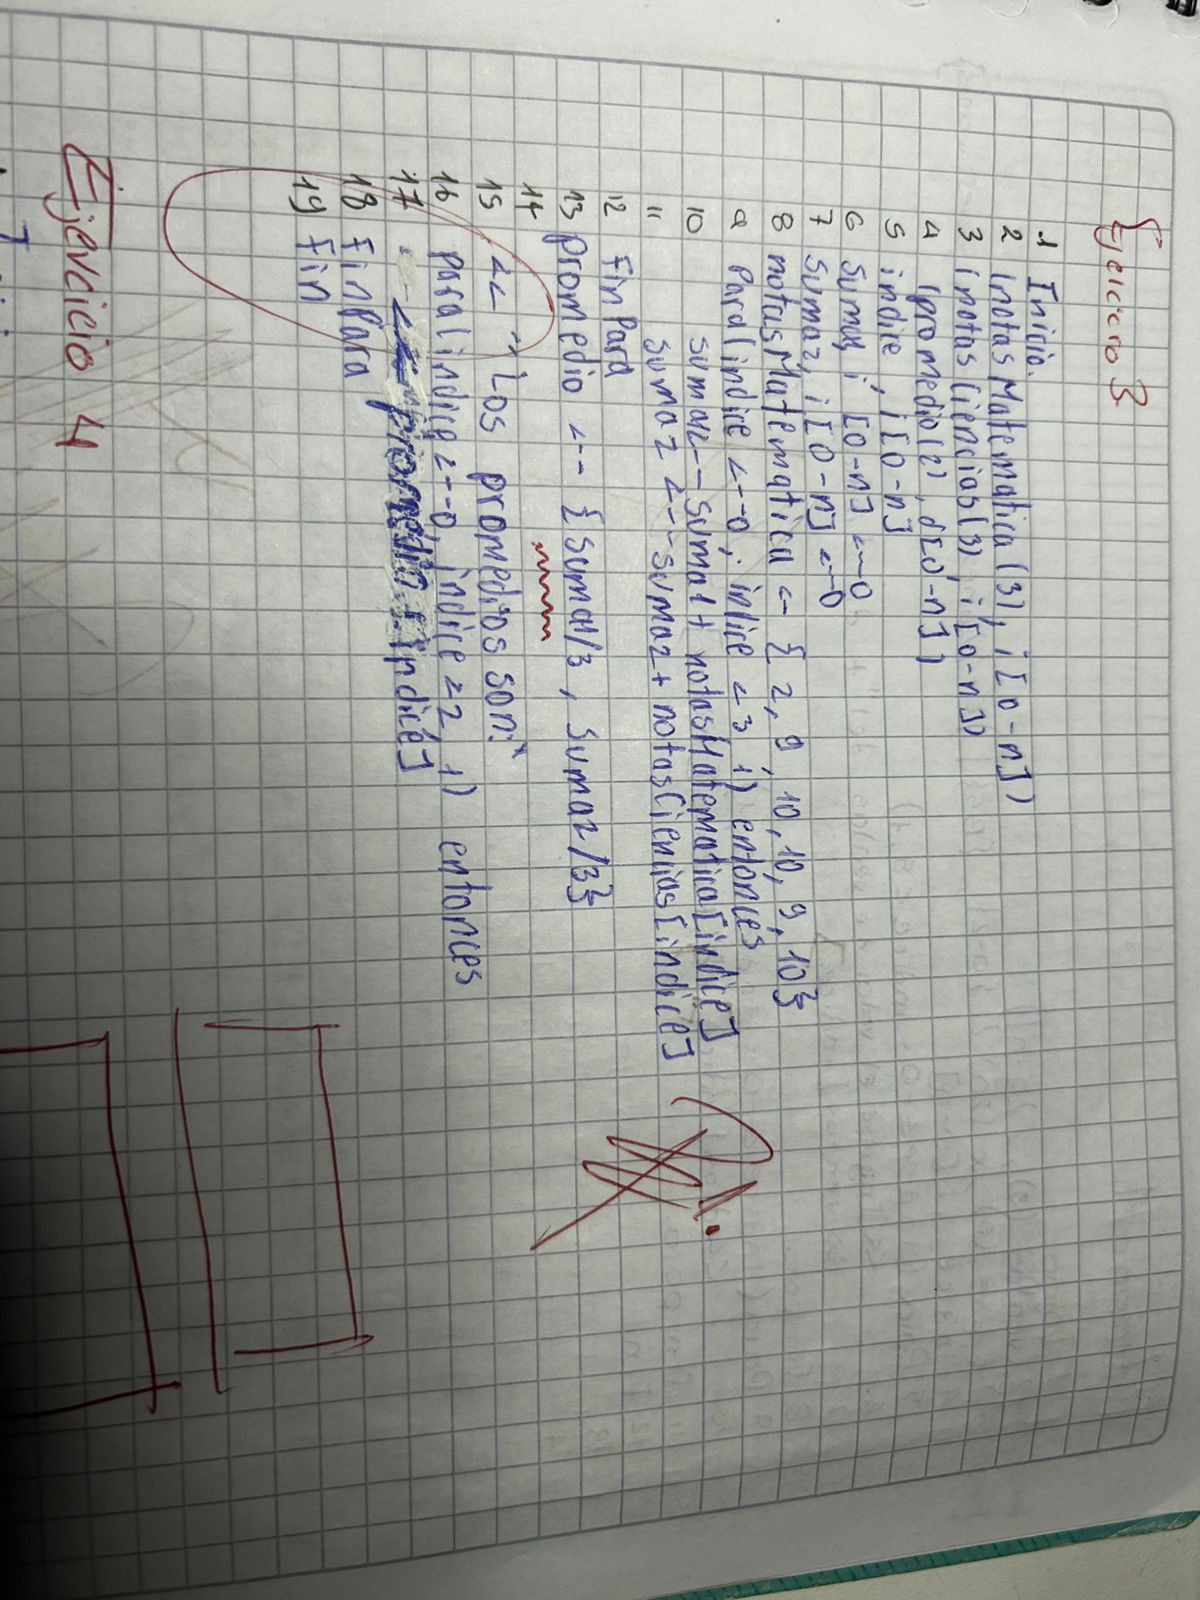 Ejercicio 3
1 Inicio.
2 (notasMatematica(3), i[0-n])
3 (notasCiencias(3), i[0-n])
4 (promedio(2), d[0-n])
5 indice, i[0-n]
6 suma1, i[0-n] <--0
7 suma2, i[0-n] <--0
8 notasMatematica <- { 2, 9, 10, 10, 9, 10}
9 Para(indice <--0, indice <3, 1) entonces
10 suma1<--suma1+ notasMatematica[indice]
11 suma2 <--suma2+ notasCiencias[indice]
12 finPara
13 promedio <-- {suma1/3, suma2/3}
14
15 << "Los promedios son:"
16 para(indice<--0, indice<2, 1) entonces
17 promedio[indice]
18 finPara
19 fin
Ejercicio 4